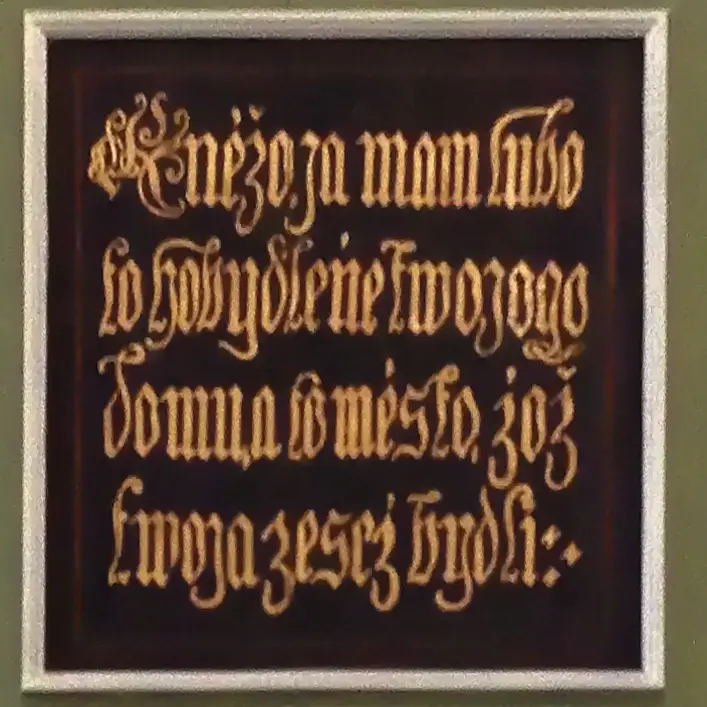 Kněžo, ja mam lubo
to hobydleńe twojogo
domu, a to město, źož
twoja zesćź bydli